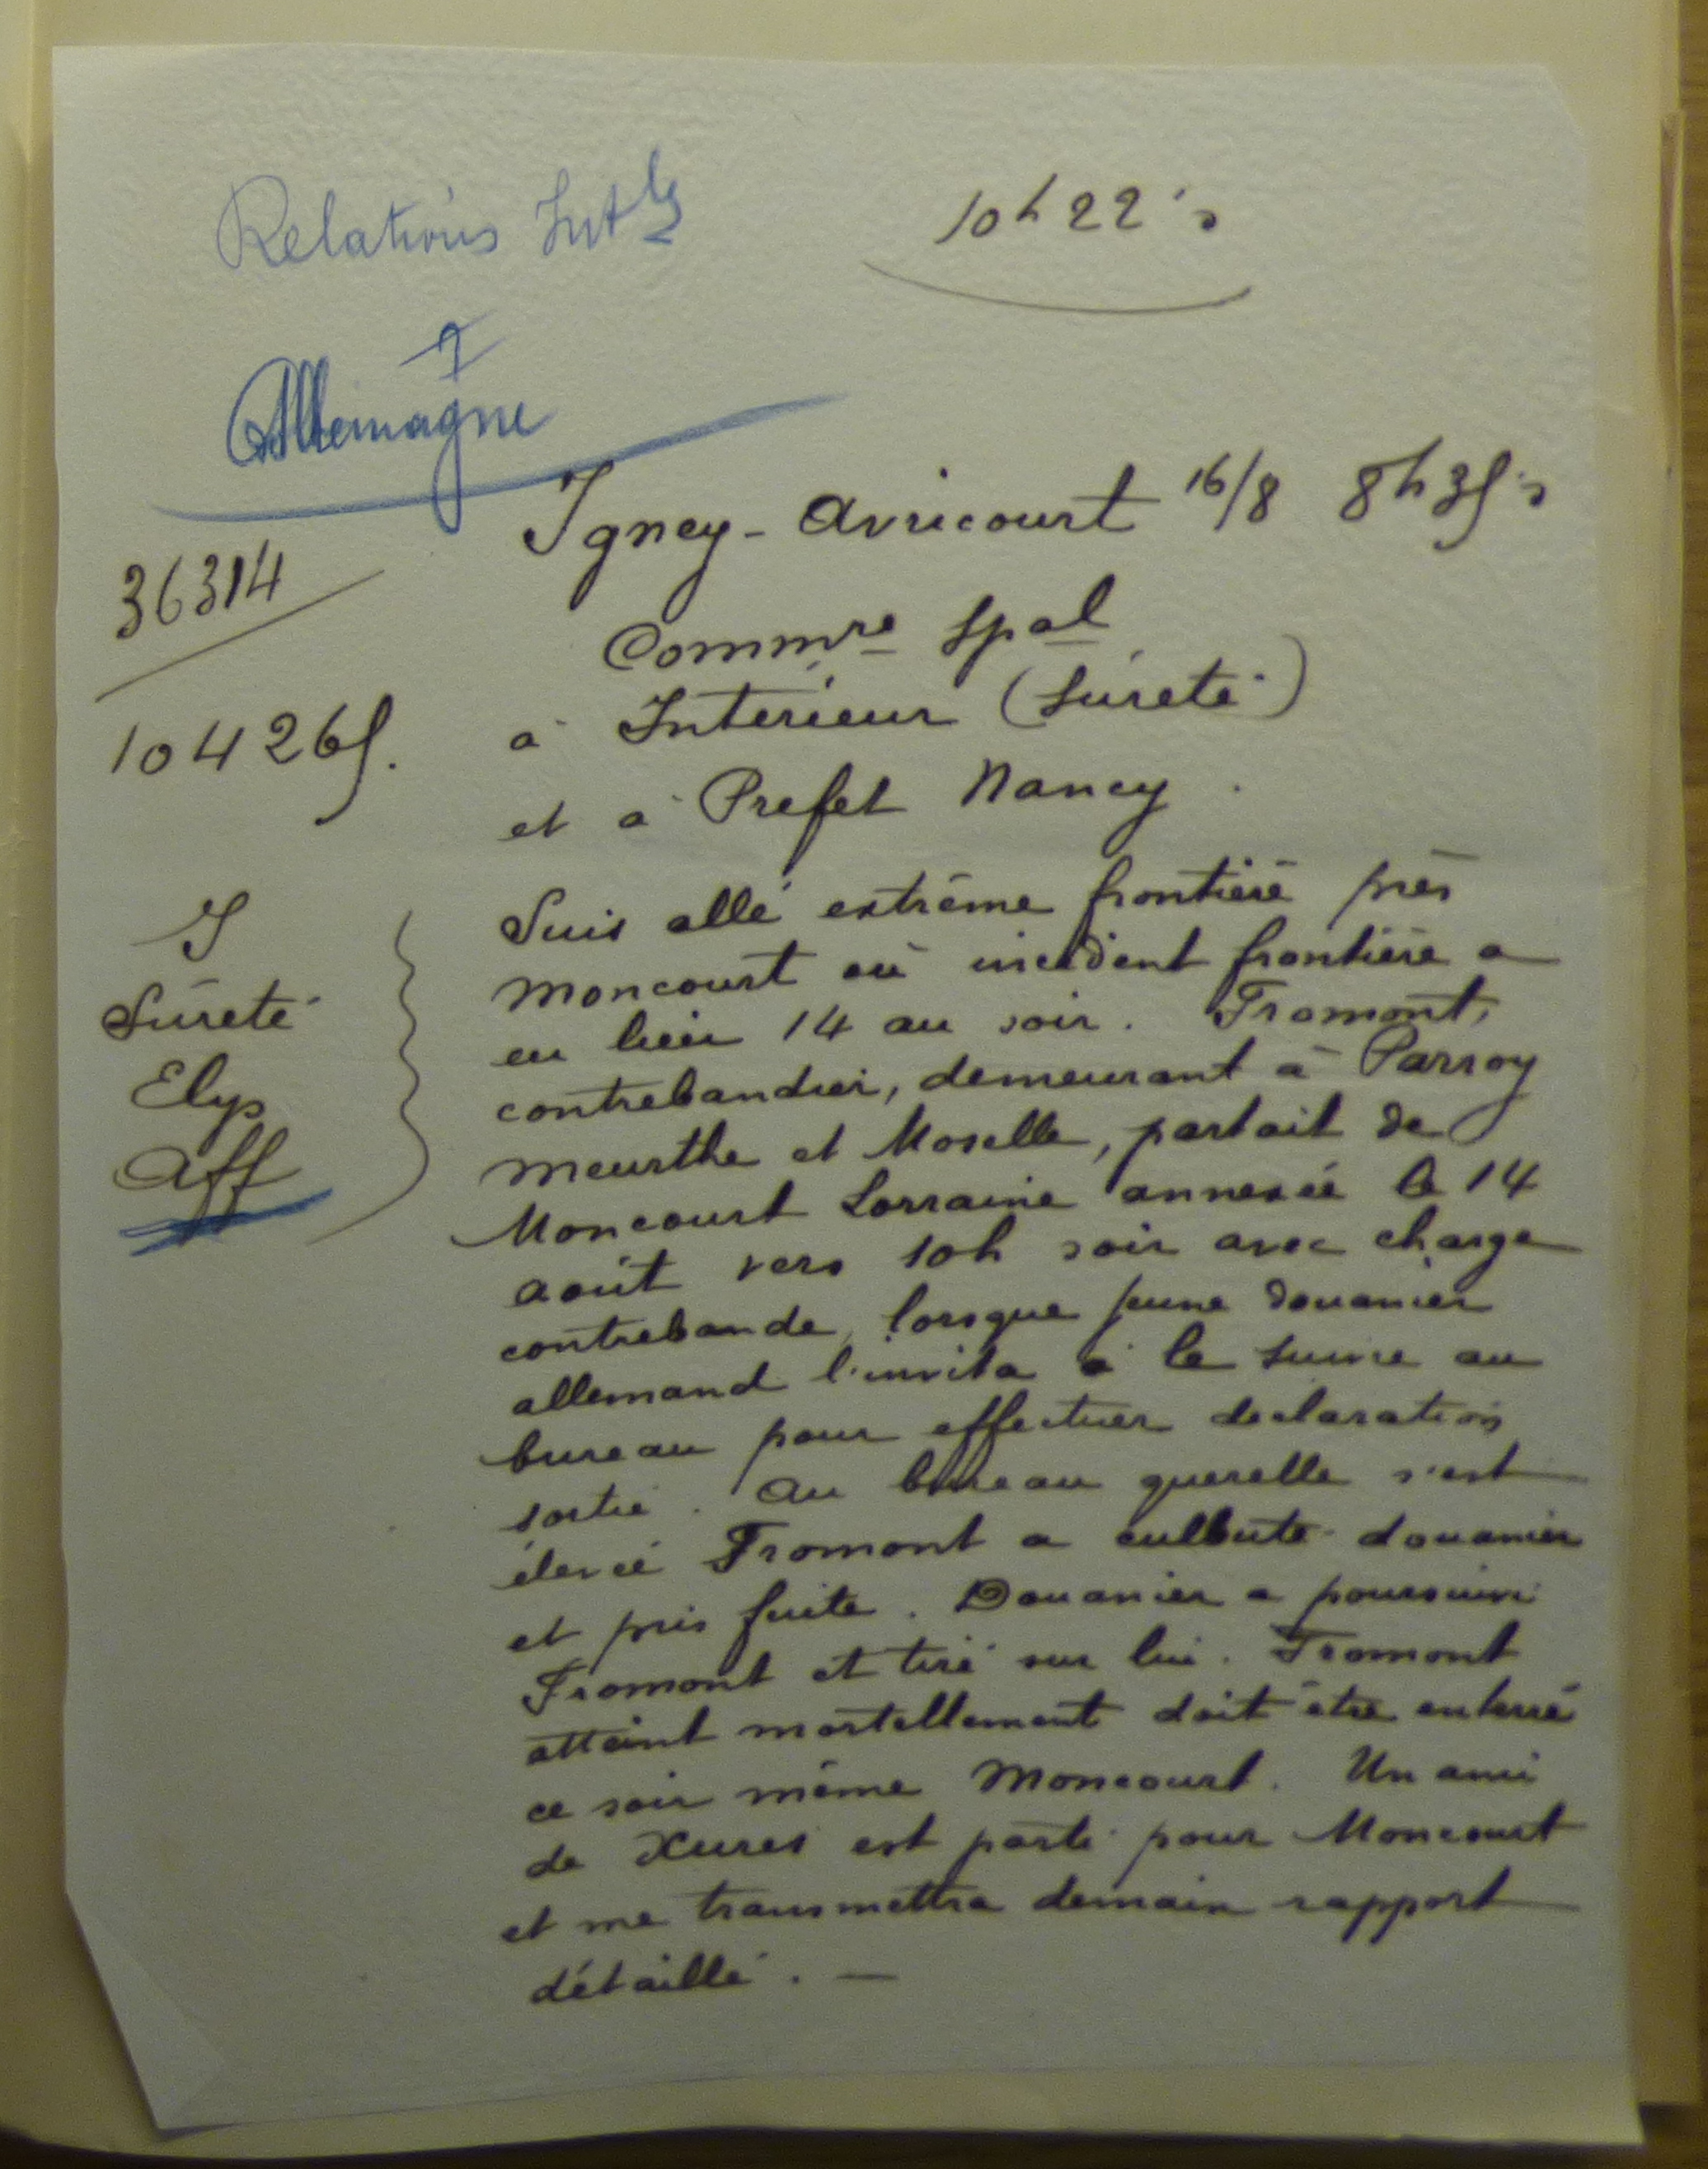 Relations Intles
10h22's
Allemagne
Igney-Avricourt 16/8 8h35's
36314
Commre Spal
à Intérieur (Sûreté)
104265.
et à Préfet Nancy.
Suis allé extrême frontière près
Moncourt où incident frontière a
eu lieu 14 au soir. Fromont,
contrebandier, demeurant à Parroy
Meurthe et Moselle, partait de
Moncourt Lorraine annexée le 14
août vers 10h soir avec charge
contrebande, lorsque jeune douanier
allemand l'invita à le suivre au
bureau pour effectuer déclaration
sortie. Au bureau querelle s'est
élevée Fromont a culbuté douanier
et pris fuite. Douanier a poursuivi
Fromont et tiré sur lui. Fromont
atteint mortellement doit être enterré
ce soir même Moncourt. Un ami
de Xures est parti pour Moncourt
et me transmettra demain rapport
détaillé. —
I
Sûreté
Elys
Aff